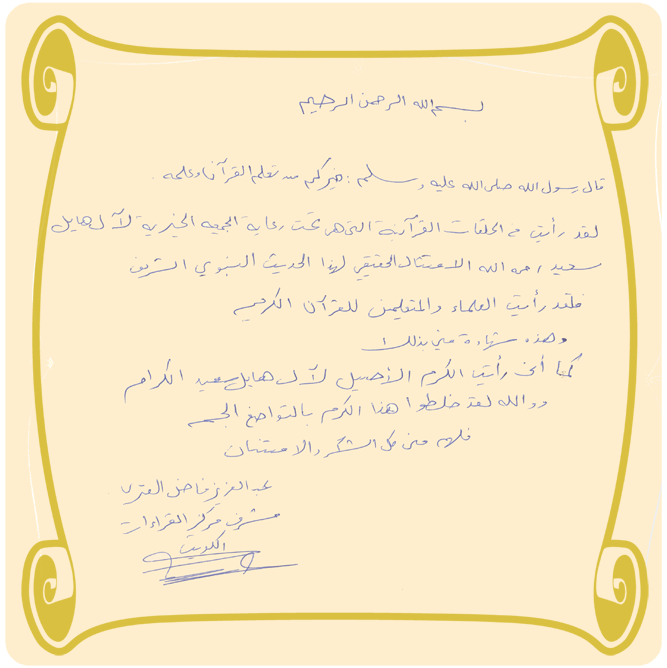 بسم الله الرحمن الرحيم
قال رسول الله صلى الله عليه وسلم : خيركم من تعلم القرآن وعلمه .
لقد رأيت في الحلقات القرآنية التي هي تحت رعاية الجمعيه الخيرية لآل هايل
سعيد رحمه الله الامتثال الحقيقي لهذا الحديث النبوي الشريف
فلقد رأيت العلماء والمتعلمين للقرآن الكريم
وهذه شهادة مني بذلك
كما أني رأيت الكرم الأصيل لآل هايل سعيد الكرام
ووالله لقد خلطوا هذا الكرم بالتواضع الجم
فلهم مني كل الشكر والامتنان
عبد العزيز فاضل العنزي
مشرف مركز القراءات
الكويت